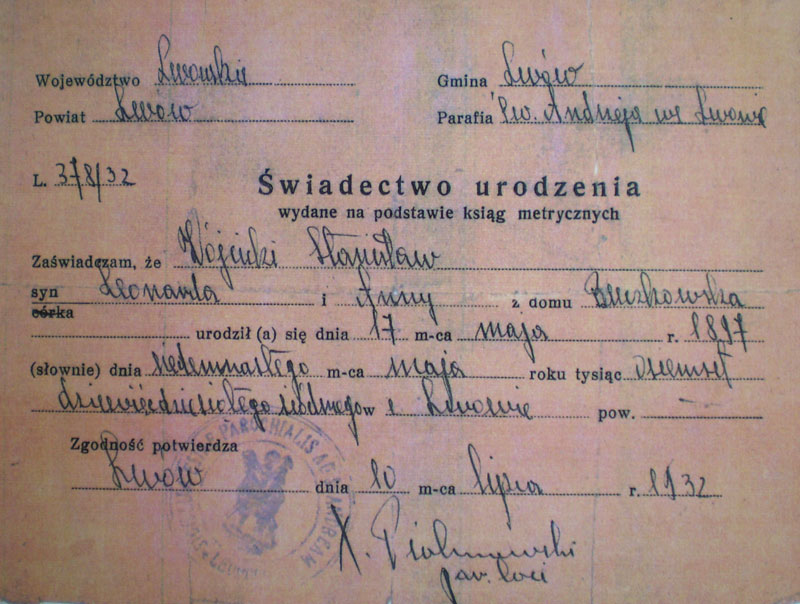 Województwo Lwowskie Gmina Lwów
Powiat Lwów Parafia Św. Andrzeja we Lwowie
L. 378/32
Świadectwo urodzenia
wydane na podstawie ksiąg metrycznych
Zaświadczam, że Wójcicki Stanisław
syn Leonarda i Anny z domu
córka
urodził (a) się dnia 17 m-ca maja r. 1897
(słownie) dnia siedemnastego m-ca maja roku tysiąc osiemset
dziewięćdziesiątego siódmego w e Lwowie pow. —
Zgodność potwierdza
PAROCHIALIS AD ANDREAM
Lwów dnia 10 m-ca lipca r. 1932
X.